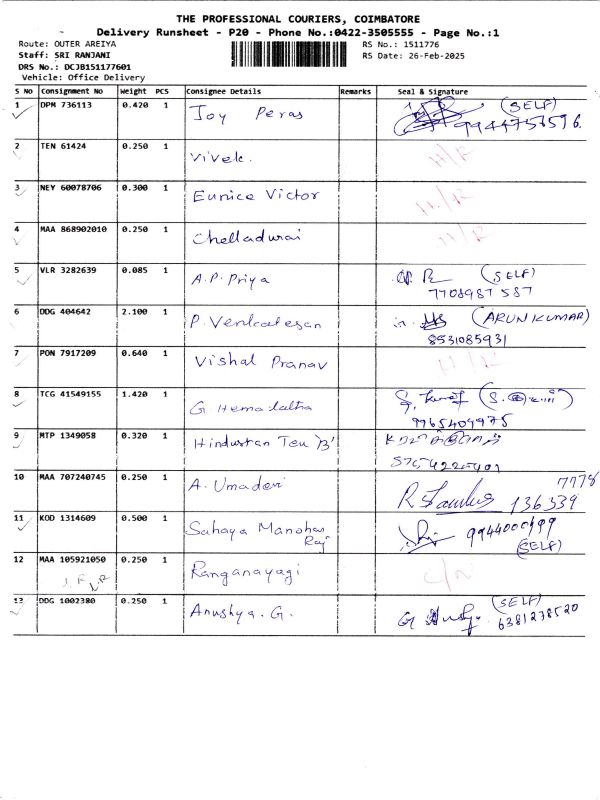 THE PROFESSIONAL COURIERS, COIMBATORE
Delivery Runsheet - P20 - Phone No.:0422-3505555 - Page No.:1
Route: OUTER AREIYA RS No.: 1511776
Staff: SRI RANJANI RS Date: 26-Feb-2025
DRS No.: DCJB151177601
Vehicle: Office Delivery
S No Consignment No Weight PCS Consignee Details Remarks Seal & Signature
1 DPM 736113 0.420 1 Joy Peras (SELF)
9944757596.
2 TEN 61424 0.250 1 Vivek. H/R
3 NEY 60078706 0.300 1 Eunice Victor H/R
4 MAA 868902010 0.250 1 Chelladurai H/R
5 VLR 3282639 0.085 1 A.P. Priya (SELF)
7708987587
6 DDG 404642 2.100 1 P. Venkatesan (ARUNKUMAR)
8531085931
7 PON 7917209 0.640 1 Vishal Pranav H/R
8 TCG 41549155 1.420 1 G Hemalatha
9765409975
9 MTP 1349058 0.320 1 Hindustan Teu 'B'
10 MAA 707240745 0.250 1 A. Umadevi 7778
136339
11 KOD 1314609 0.500 1 Sahaya Manohar Raj 9944000499
(SELF)
12 MAA 105921050 0.250 1 Ranganayagi
13 DDG 1002380 0.250 1 Anushya. G. (SELF)
6381238520